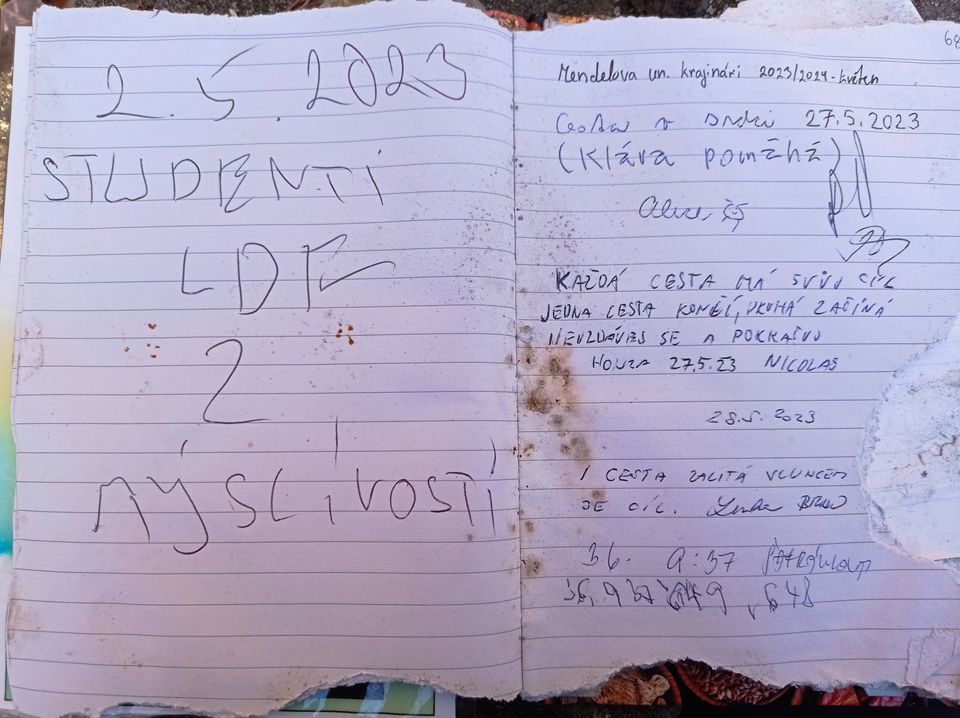 2.5.2023
STUDENTI
LDF
2
MÝSLIVOSTI
68
Mendelova un. krajinári 2023/2024 - květen
Cesta v srdci 27.5.2023
(Kláva poměhé)
KAŽDÁ CESTA MÁ SVŮJ CÍL
JEDNA CESTA KONČÍ, DRUHÁ ZAČÍNÁ
NEVZDÁVEJ SE A POKRAČUJ
HONZA 27.5.23 NICOLAS
28.5.2023
I CESTA ZALITÁ
JE CÍL. Lenka BRNO
3.6. 9:37